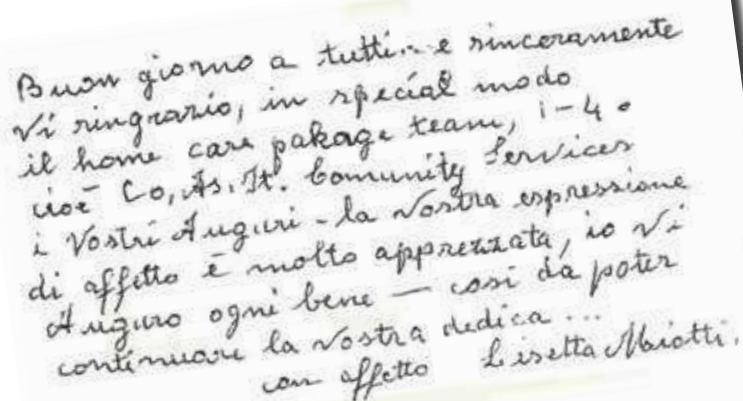 Buon giorno a tutti.. e sinceramente
Vi ringrazio, in special modo
il home care pakage team, i-4.
cioè Co, As. It. Comunity Services
i Vostri Auguri - la Vostra espressione
di affetto è molto apprezzata, io Vi
Auguro ogni bene — così da poter
continuare la Vostra dedica ...
con affetto Lisetta Maiotti.